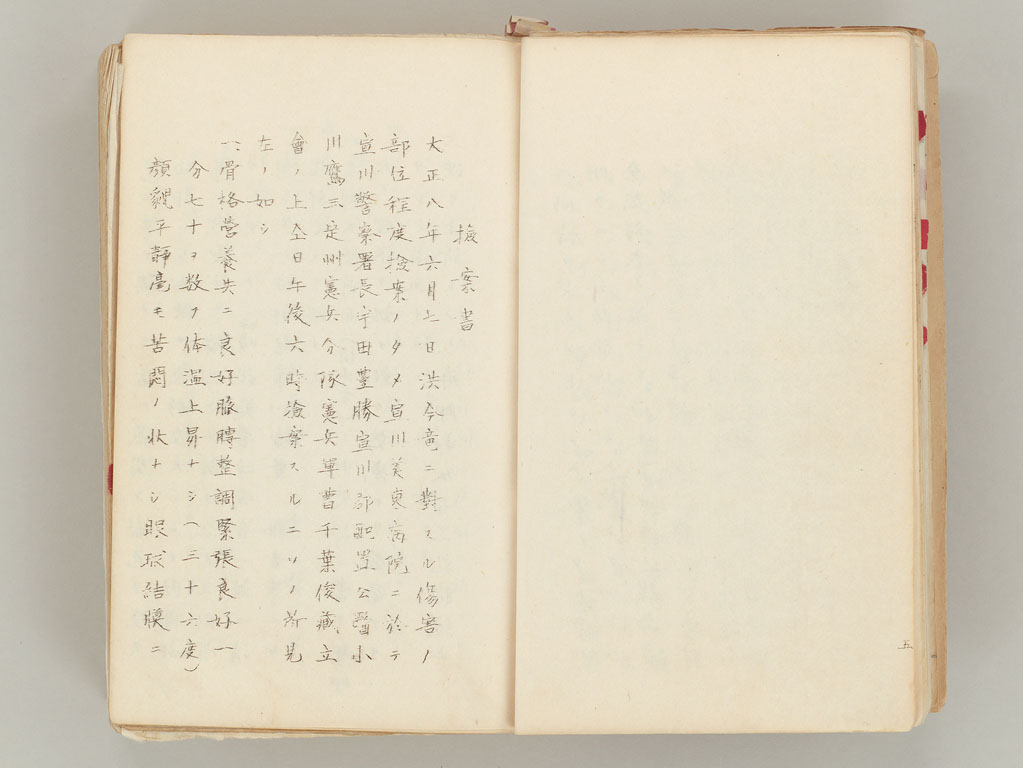 五
検案書
大正八年六月七日洪今竜ニ對スル傷害ノ
部位程度検案ノタメ宣川美東病院ニ於テ
宣川警察署長宇田豊勝宣川郡配置公醫小
川鷹三定州憲兵分隊憲兵軍曹千葉俊藏、立
會ノ上仝日午後六時検案スルニソノ所見
左ノ如シ
一、骨格営養共ニ良好脈膊整調緊張良好一
分七十ヲ数ヲ体温上昇ナシ（三十六度）
顔貌平静毫モ苦悶ノ状ナシ眼球結膜ニ